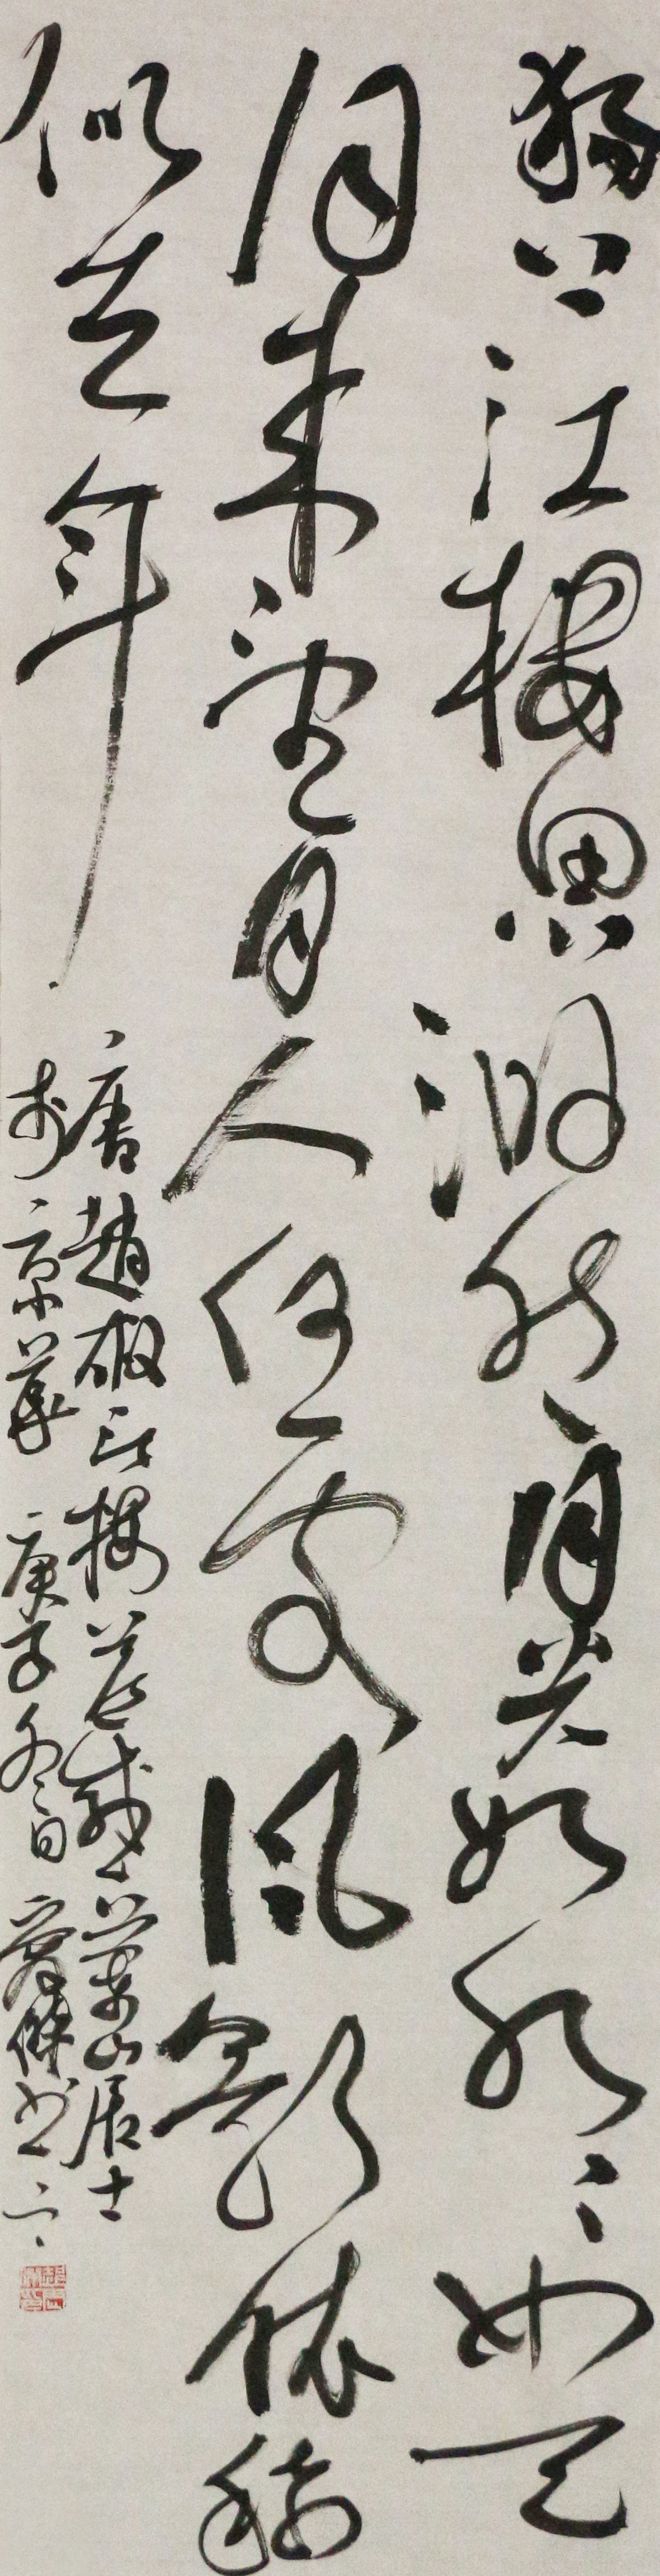 獨上江樓思渺然月光如水〻如天
同来望月人何處風景依稀
似去年
唐趙嘏江樓舊感 山居士
於京華 庚子冬日 書